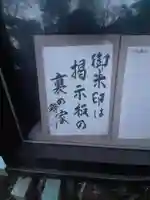 御朱印は
掲示板の
裏の家